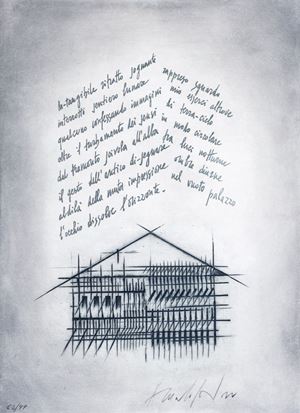 In-tangibile ritratto sognante rappreso sguardo
interrotto sentiero lunare mio esserci altrove
qualcuno confessando immagini di terra-cielo
oltre il turbamento dei sensi in modo circolare
dal tramonto scivola all'alba fra luci notturne
il gesto dell'antico di-segnare ombre diurne
aldilà nella muta impressione nel vuoto palazzo
l'occhio dissolve l'orizzonte.
62/99